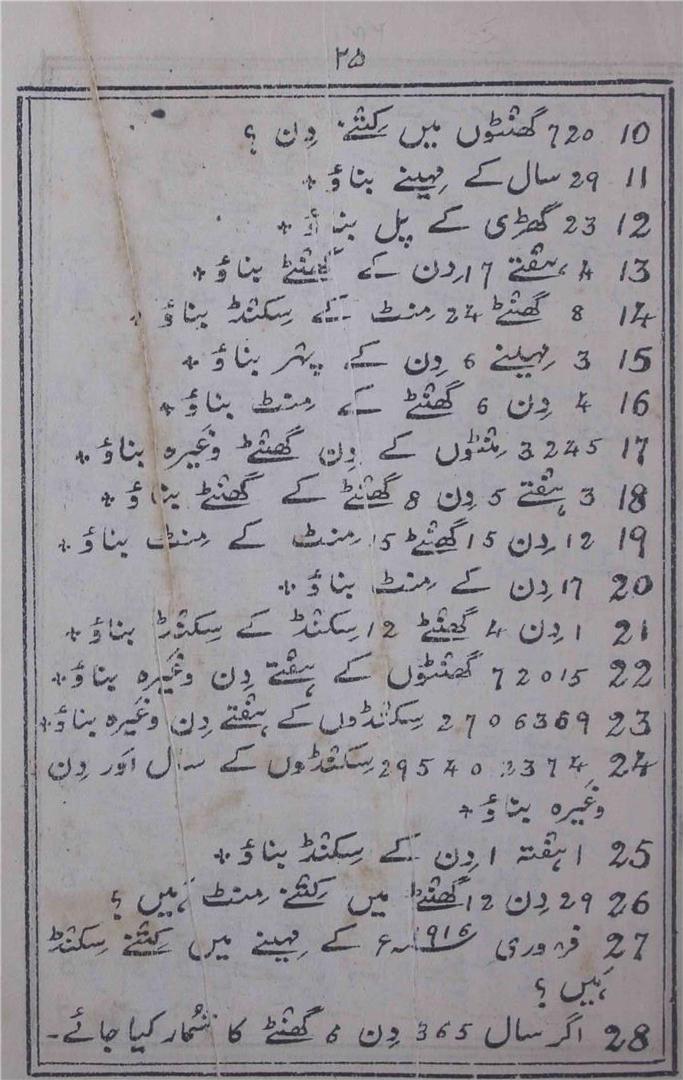 ۲۵
10 720 گھنٹوں میں کِتنے دِن ؟
11 29 سال کے مہینے بناؤ ٭
12 23 گھڑی کے پل بناؤ ٭
13 4 ہفتے 17 دِن کے گھنٹے بناؤ ٭
14 8 گھنٹے 24 مِنٹ کے سِکنڈ بناؤ ٭
15 3 مہینے 6 دِن کے پہر بناؤ ٭
16 4 دِن 6 گھنٹے کے مِنٹ بناؤ ٭
17 3245 مِنٹوں کے دِن گھنٹے وغَیرہ بناؤ ٭
18 3 ہفتے 5 دِن 8 گھنٹے کے گھنٹے بناؤ ٭
19 12 دِن 15 گھنٹے 15 مِنٹ کے مِنٹ بناؤ ٭
20 17 دِن کے مِنٹ بناؤ ٭
21 1 دِن 4 گھنٹے 12 سِکنڈ کے سِکنڈ بناؤ ٭
22 72015 گھنٹوں کے ہفتے دِن وغَیرہ بناؤ ٭
23 2706369 سِکنڈوں کے ہفتے دِن وغَیرہ بناؤ ٭
24 295402374 سِکنڈوں کے سال اَور دِن
وغَیرہ بناؤ ٭
25 1 ہفتہ 1 دِن کے سِکنڈ بناؤ ٭
26 29 دِن 12 گھنٹے میں کِتنے مِنٹ ہَیں ؟
27 فروری 1916ء کے مہینے میں کِتنے سِکنڈ
ہَیں ؟
28 اگر سال 365 دِن 6 گھنٹے کا شُمار کیا جائے۔